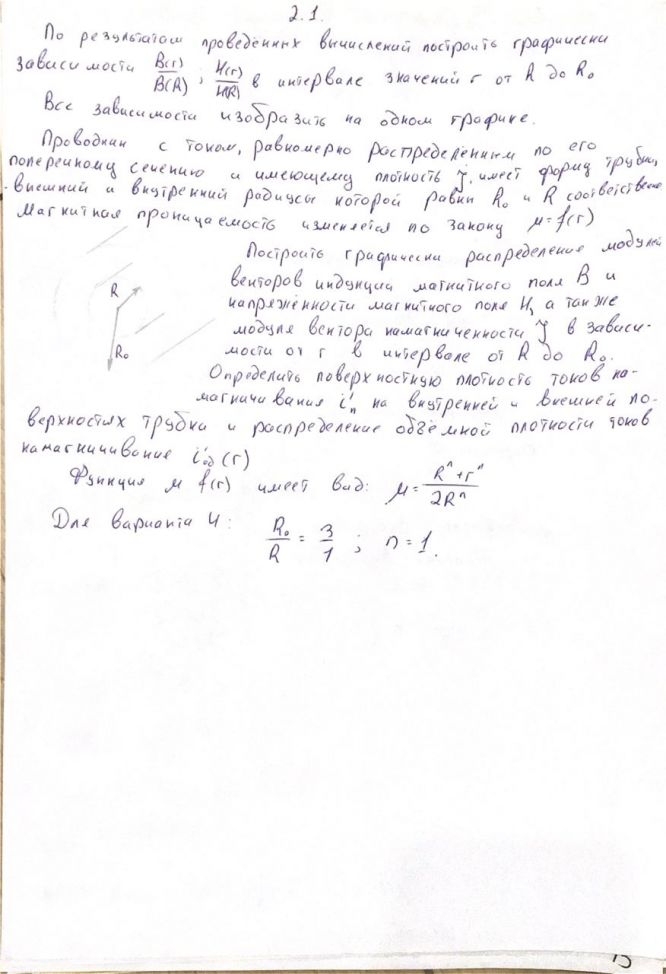 2.1.
По результатам проведённых вычислений построить графически
зависимости B(r)/B(R) ; H(r)/H(R) в интервале значений r от R до R₀
Все зависимости изобразить на одном графике.
Проводник с током, равномерно распределённым по его
поперечному сечению и имеющему плотность j, имеет форму трубки,
внешний и внутренний радиусы которой равны R₀ и R соответственно
Магнитная проницаемость изменяется по закону μ=f(r)
Построить графически распределение модулей
векторов индукции магнитного поля B и
R
напряжённости магнитного поля H, а также
модуля вектора намагниченности J в зависи-
R₀
мости от r в интервале от R до R₀.
Определить поверхностную плотность токов на-
магничивания i'ₙ на внутренней и внешней по-
верхностях трубки и распределение объёмной плотности токов
намагничивание i'об(r)
Функция μ f(r) имеет вид: μ = (Rⁿ+rⁿ)/2Rⁿ
Для варианта 4: R₀/R = 3/1 ; n=1.
15